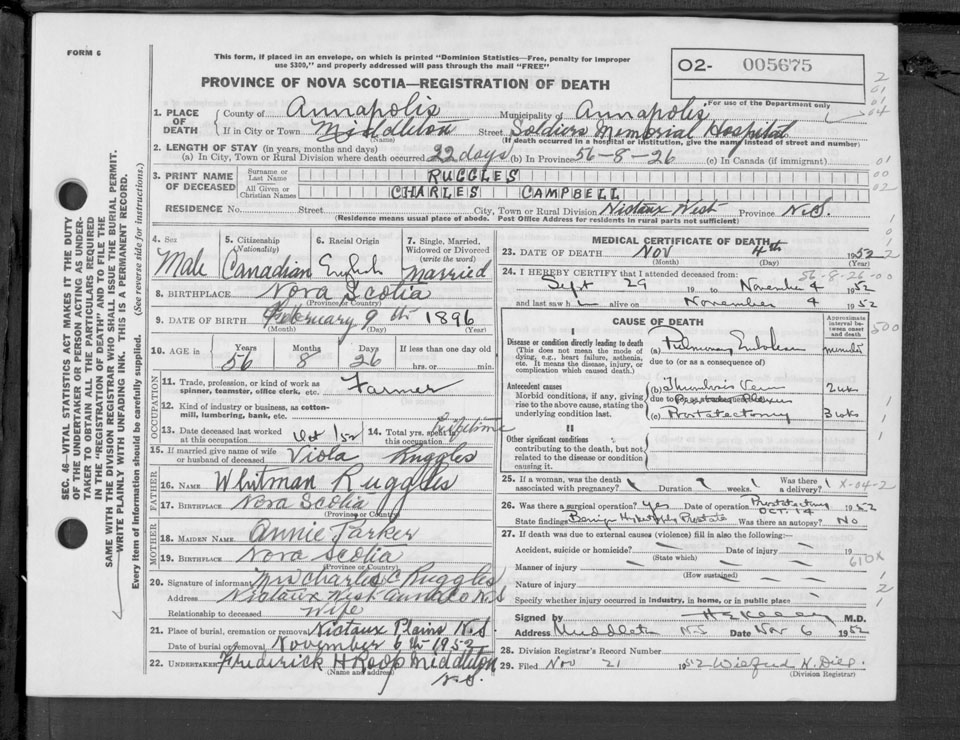 FORM 6
This form, if placed in an envelope, on which is printed "Dominion Statistics—Free, penalty for improper
use $300," and properly addressed will pass through the mail "FREE"
PROVINCE OF NOVA SCOTIA—REGISTRATION OF DEATH
O2- 005675
For use of the Department only
1. PLACE OF DEATH County of Annapolis Municipality of Annapolis
If in City or Town Middleton Street Soldiers Memorial Hospital
(Name) (If death occurred in a hospital or institution, give the name instead of street and number)
2. LENGTH OF STAY (in years, months and days)
(a) In City, Town or Rural Division where death occurred 22 days (b) In Province 56-8-26 (c) In Canada (if immigrant)
3. PRINT NAME OF DECEASED Surname or Last Name RUGGLES
All Given or Christian Names CHARLES CAMPBELL
RESIDENCE No. Street City, Town or Rural Division Nictaux West Province N.S.
(Residence means usual place of abode. Post Office Address for rural parts not sufficient)
SEC. 46—VITAL STATISTICS ACT MAKES IT THE DUTY
OF THE UNDERTAKER OR PERSON ACTING AS UNDER-
TAKER TO OBTAIN ALL THE PARTICULARS REQUIRED
IN THE "REGISTRATION OF DEATH" AND TO FILE THE
SAME WITH THE DIVISION REGISTRAR WHO SHALL ISSUE THE BURIAL PERMIT.
WRITE PLAINLY WITH UNFADING INK. THIS IS A PERMANENT RECORD.
Every item of information should be carefully supplied. (See reverse side for instructions.)
4. Sex 5. Citizenship (Nationality) 6. Racial Origin 7. Single, Married, Widowed or Divorced (write the word)
Male Canadian English Married
8. BIRTHPLACE Nova Scotia
(Province or Country)
9. DATE OF BIRTH February 9th 1896
(Month) (Day) (Year)
10. AGE in Years Months Days If less than one day old
56 8 26 hrs. or min.
OCCUPATION
11. Trade, profession, or kind of work as
spinner, teamster, office clerk, etc. Farmer
12. Kind of industry or business, as cotton-
mill, lumbering, bank, etc.
13. Date deceased last worked at this occupation Oct 1/52 14. Total yrs. spent in this occupation Lifetime
15. If married give name of wife or husband of deceased Viola Ruggles
FATHER
16. NAME Whitman Ruggles
17. BIRTHPLACE Nova Scotia
(Province or Country)
MOTHER
18. MAIDEN NAME Annie Parker
19. BIRTHPLACE Nova Scotia
(Province or Country)
20. Signature of informant Mrs Charles C Ruggles
Address Nictaux West Anna Co N.S
Relationship to deceased Wife
21. Place of burial, cremation or removal Nictaux Plains N.S
Date of burial or removal November 6th 1952
22. UNDERTAKER Frederick H Roop Middleton
(Name and address) N.S.
MEDICAL CERTIFICATE OF DEATH
23. DATE OF DEATH Nov 4th 1952
(Month) (Day) (Year)
24. I HEREBY CERTIFY that I attended deceased from: 56-8-26-00
Sept 29 19 to November 4 1952
and last saw h alive on November 4 1952
CAUSE OF DEATH
Approximate interval between onset and death
I
Disease or condition directly leading to death
(This does not mean the mode of
dying, e.g., heart failure, asthenia,
etc. It means the disease, injury, or
complication which caused death.)
(a) Pulmonary Embolism minutes
due to (or as a consequence of)
Antecedent causes
Morbid conditions, if any, giving
rise to the above cause, stating the
underlying condition last.
(b) Thrombosis Veins 2 wks
due to (or as a consequence of)
(c) Prostatectomy 3 wks
II
Other significant conditions
contributing to the death, but not
related to the disease or condition
causing it.
25. If a woman, was the death associated with pregnancy? Duration weeks. Was there a delivery? X-04-2
26. Was there a surgical operation? Yes Date of operation Prostatectomy OCT. 14 1952
State findings Benign Hypertrophy Prostate Was there an autopsy? No
27. If death was due to external causes (violence) fill in also the following:—
Accident, suicide or homicide? Date of injury 19
(State which)
Manner of injury 610X
(How sustained)
Nature of injury
Specify whether injury occurred in industry, in home, or in public place
Signed by M.D.
Address Middleton NS Date Nov 6 1952
28. Division Registrar's Record Number
29. Filed Nov 21 1952 Wilfred H.
(Division Registrar)